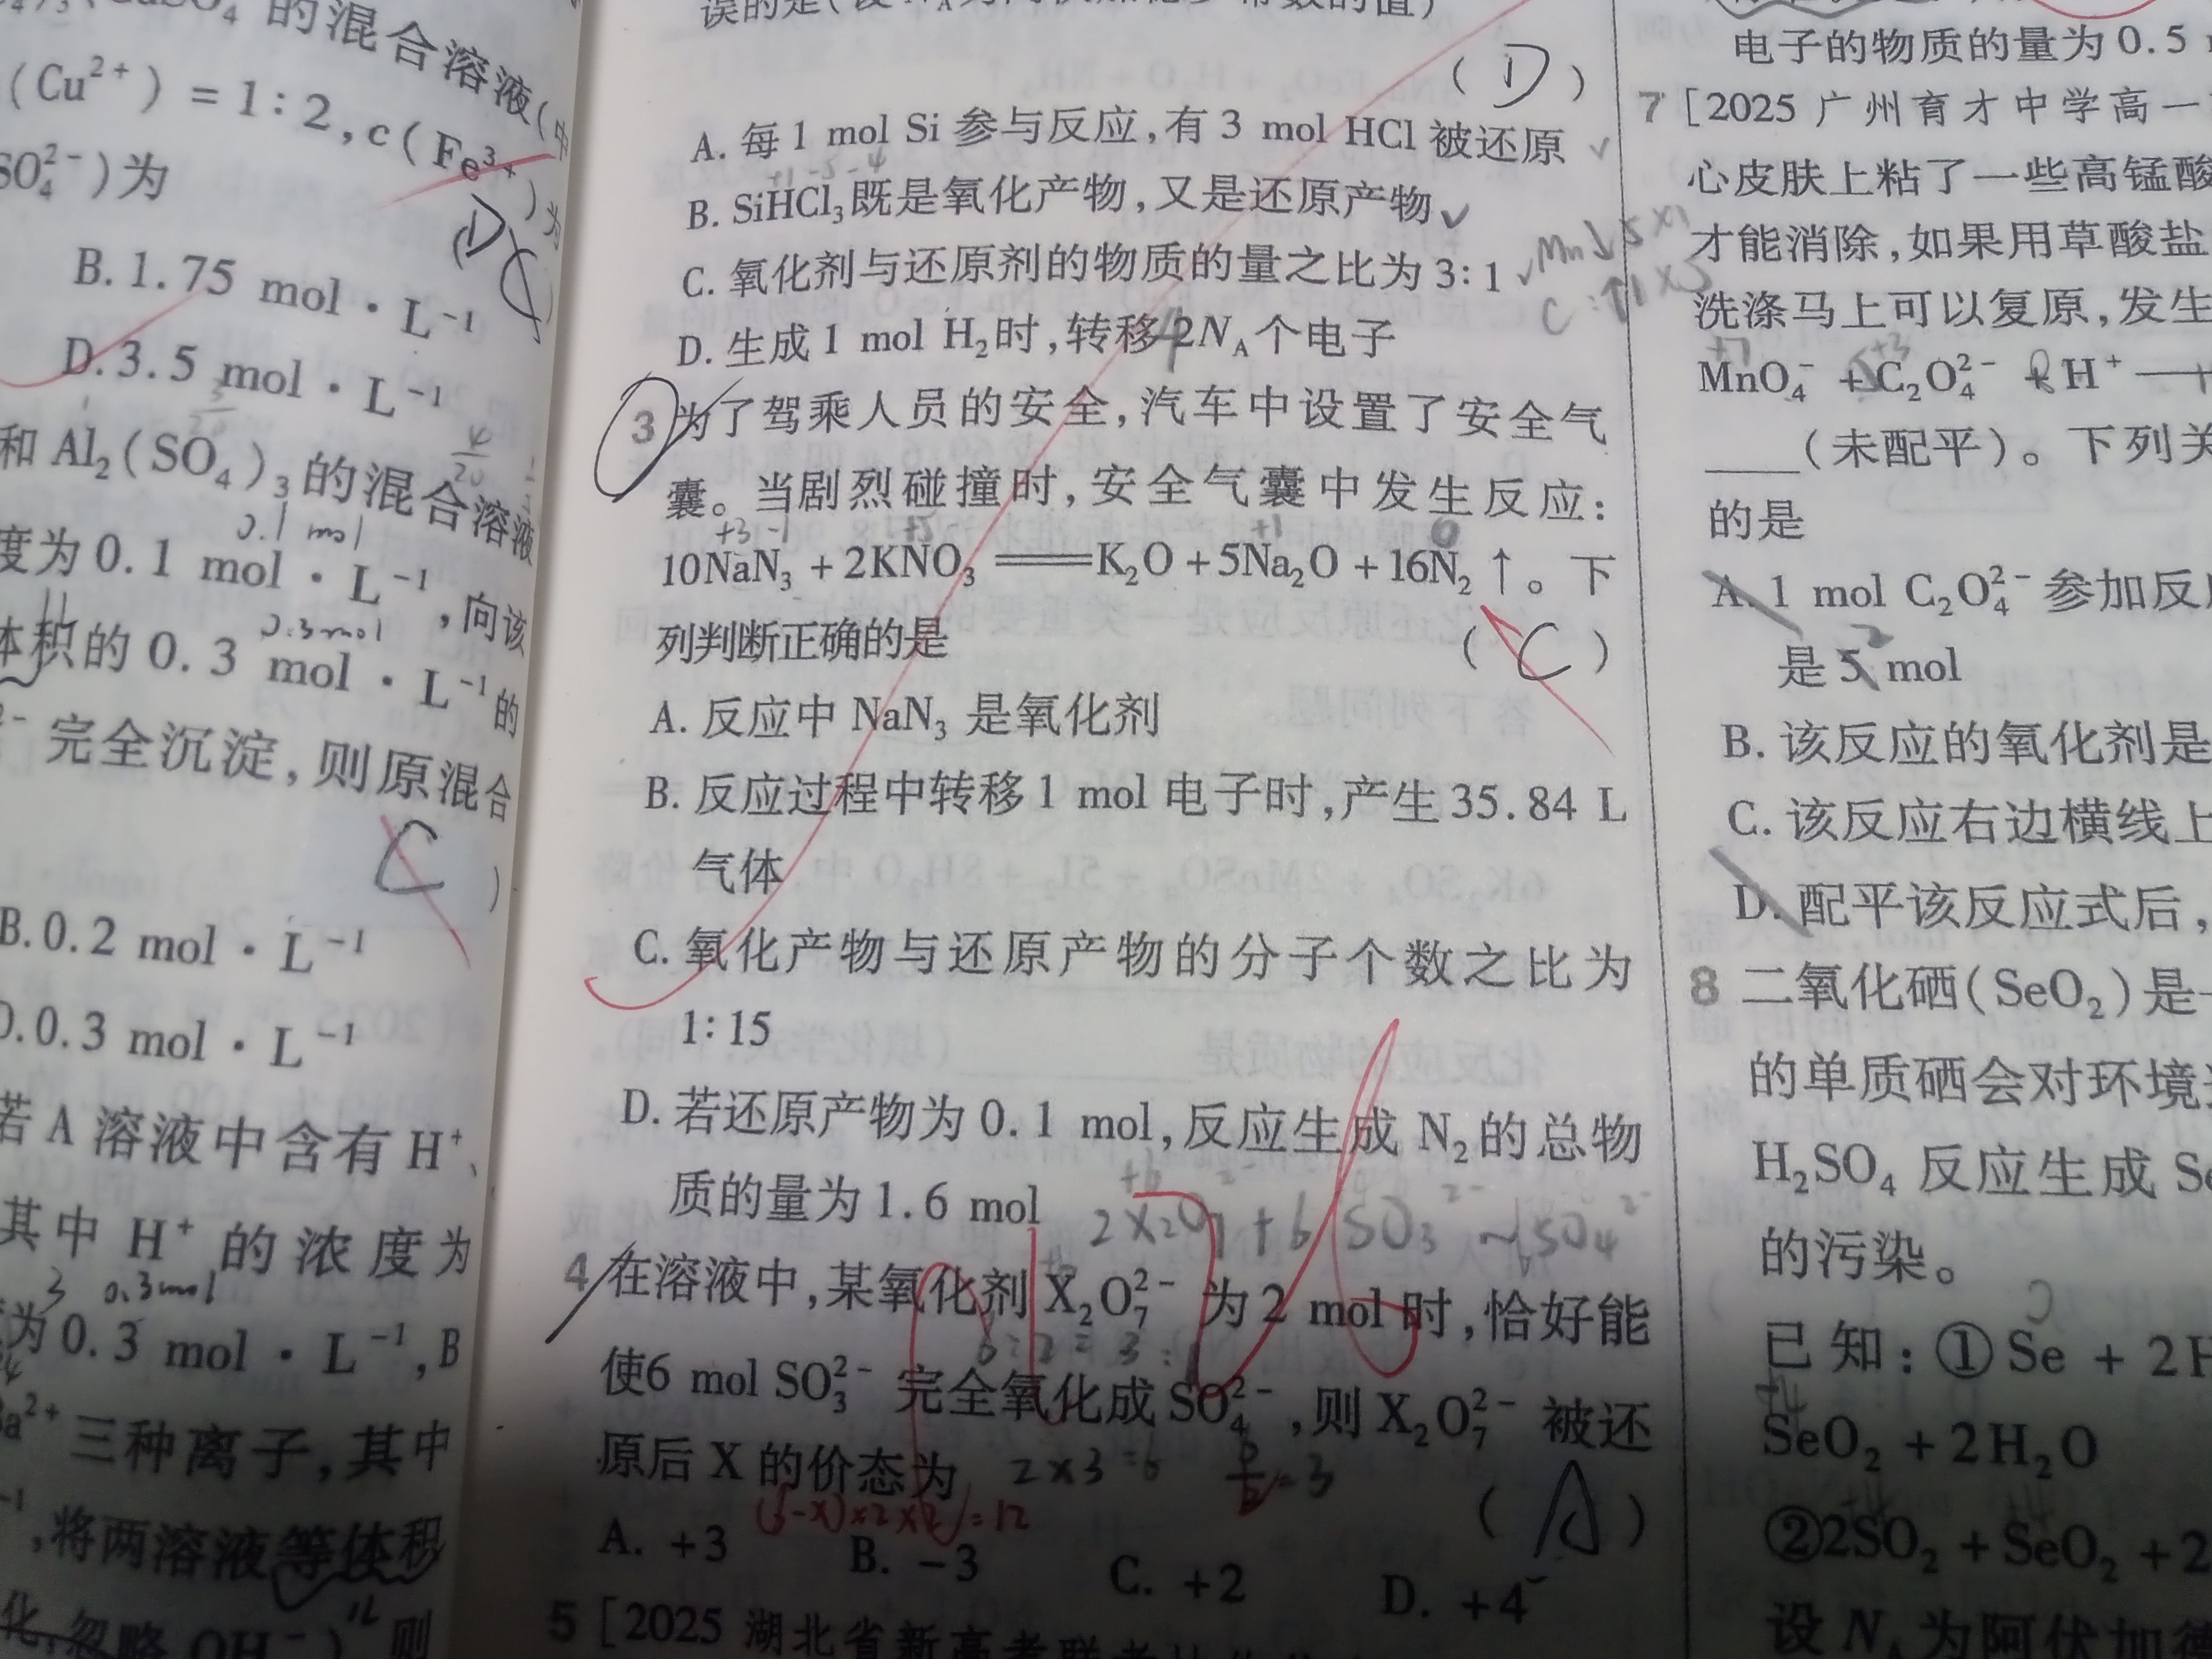 的混合溶液(
(Cu²⁺) = 1∶2, c(Fe³⁺)为
SO₄²⁻)为
D
C
B. 1.75 mol·L⁻¹
D. 3.5 mol·L⁻¹
和 Al₂(SO₄)₃的混合溶液
0.1 mol
度为 0.1 mol·L⁻¹,向该
0.3mol
体积的 0.3 mol·L⁻¹的
完全沉淀,则原混合
C )
B. 0.2 mol·L⁻¹
0.3 mol·L⁻¹
若 A 溶液中含有 H⁺、
其中 H⁺ 的浓度为
3 0.3mol
为 0.3 mol·L⁻¹,B
Ba²⁺ 三种离子,其中
,将两溶液等体积
化,忽略 OH⁻) 则
(D)
A. 每 1 mol Si 参与反应,有 3 mol HCl 被还原
B. SiHCl₃既是氧化产物,又是还原产物
C. 氧化剂与还原剂的物质的量之比为 3∶1
D. 生成 1 mol H₂时,转移 2N_A个电子
3 为了驾乘人员的安全,汽车中设置了安全气
囊。当剧烈碰撞时,安全气囊中发生反应:
+3 -1 +5 +1 0
10NaN₃ + 2KNO₃ ══ K₂O + 5Na₂O + 16N₂↑。下
列判断正确的是 (C)
A. 反应中 NaN₃ 是氧化剂
B. 反应过程中转移 1 mol 电子时,产生 35.84 L
气体
C. 氧化产物与还原产物的分子个数之比为
1∶15
D. 若还原产物为 0.1 mol,反应生成 N₂的总物
质的量为 1.6 mol
2X₂O₇²⁻ + 6SO₃²⁻ ~ SO₄²⁻
4 在溶液中,某氧化剂 X₂O₇²⁻ 为 2 mol 时,恰好能
6:2=3:1
使6 mol SO₃²⁻ 完全氧化成 SO₄²⁻,则 X₂O₇²⁻ 被还
原后 X 的价态为 2×3=6 (A)
(6-x)×2×2=12
A. +3 B. -3 C. +2 D. +4
5 [2025 湖北省新高考联考
电子的物质的量为 0.5
7 [2025 广州育才中学高一
心皮肤上粘了一些高锰酸
Mn↓5×1
C:↑1×5
才能消除,如果用草酸盐
洗涤马上可以复原,发生
+7 +3
MnO₄⁻ + C₂O₄²⁻ + H⁺ —
____(未配平)。下列关
的是
A. 1 mol C₂O₄²⁻ 参加反
是 5 mol
2
B. 该反应的氧化剂是
C. 该反应右边横线上
D. 配平该反应式后,
8 二氧化硒(SeO₂)是
的单质硒会对环境
H₂SO₄ 反应生成
的污染。
已知:①Se + 2H
+4
SeO₂ + 2H₂O
+4 +4
②2SO₂ + SeO₂ + 2
设 N_A为阿伏加德